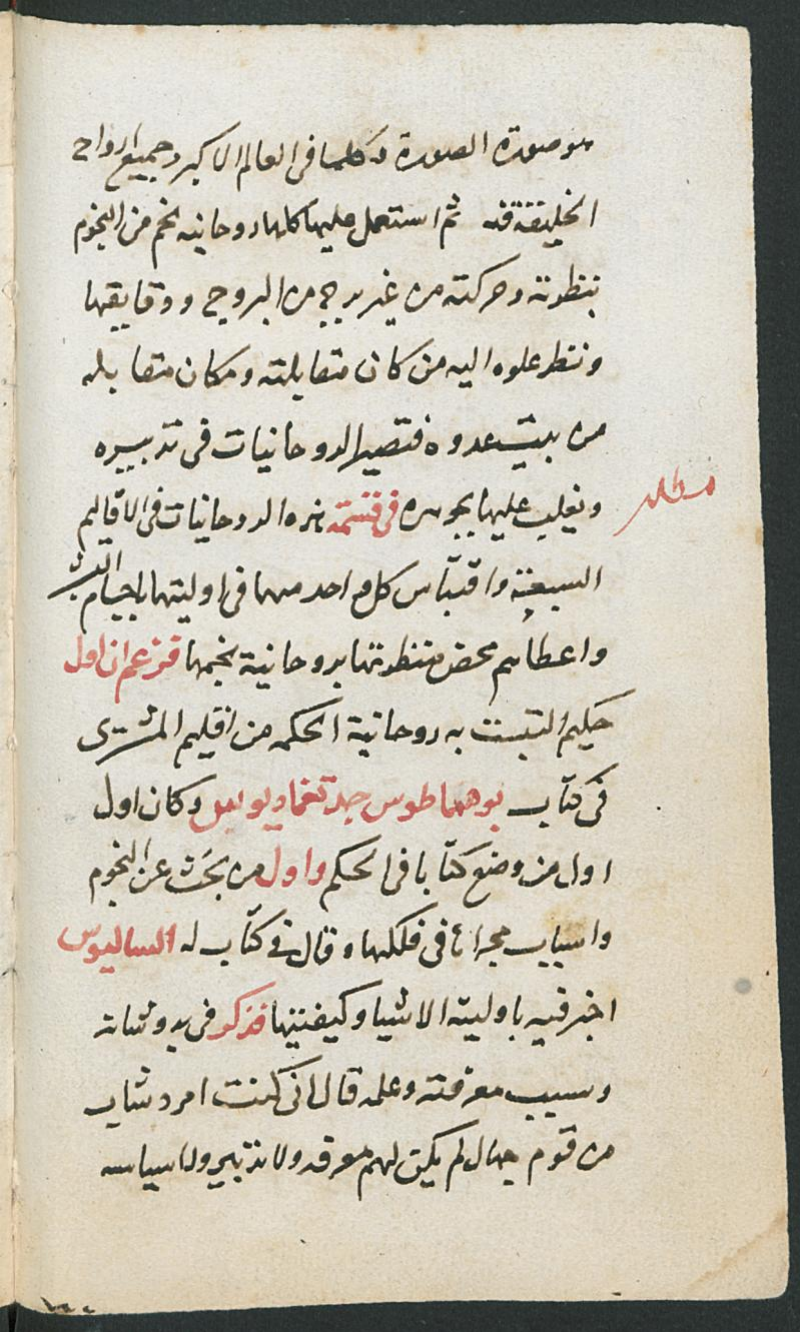 هو صورة الصورة وكلما فى العالم الاكبر وجميع ارواح
الخليقة فيه ثم استعمل عليها كلها روحانية نجم من النجوم
بنظرته وحركته من غير برج من البروج ودقايقها
ونظر علوه اليه من كان مقابلته ومكان مقابله
من بيت عدوه فتصير الروحانيات فى تدبيره
ويغلب عليها بجوهره فى قسمة هذه الروحانيات فى الاقاليم
مطلب
السبعة واقتباس كل واحد منها فى اوليتها باجسام البشر
واعطاهم محض منظرتها بروحانية نجمها فزعم ان اول
حكيم التبست به روحانية الحكمه من اقليم المشترى
فى كتاب بوهماطوس جد تغماديوس وكان اول
اول من وضع كتابا فى الحكم واول من بحث عن النجوم
واسباب مجراها فى فلكها وقال فى كتاب له السالبوس
اخبر فيه باولية الاشيا وكيفيتها فذكر فى بدو شانه
وسبب معرفته وعلمه قال انى كنت امرد شاب
من قوم جهال لم يكن لهم معرفه ولا تدبير ولا سياسه